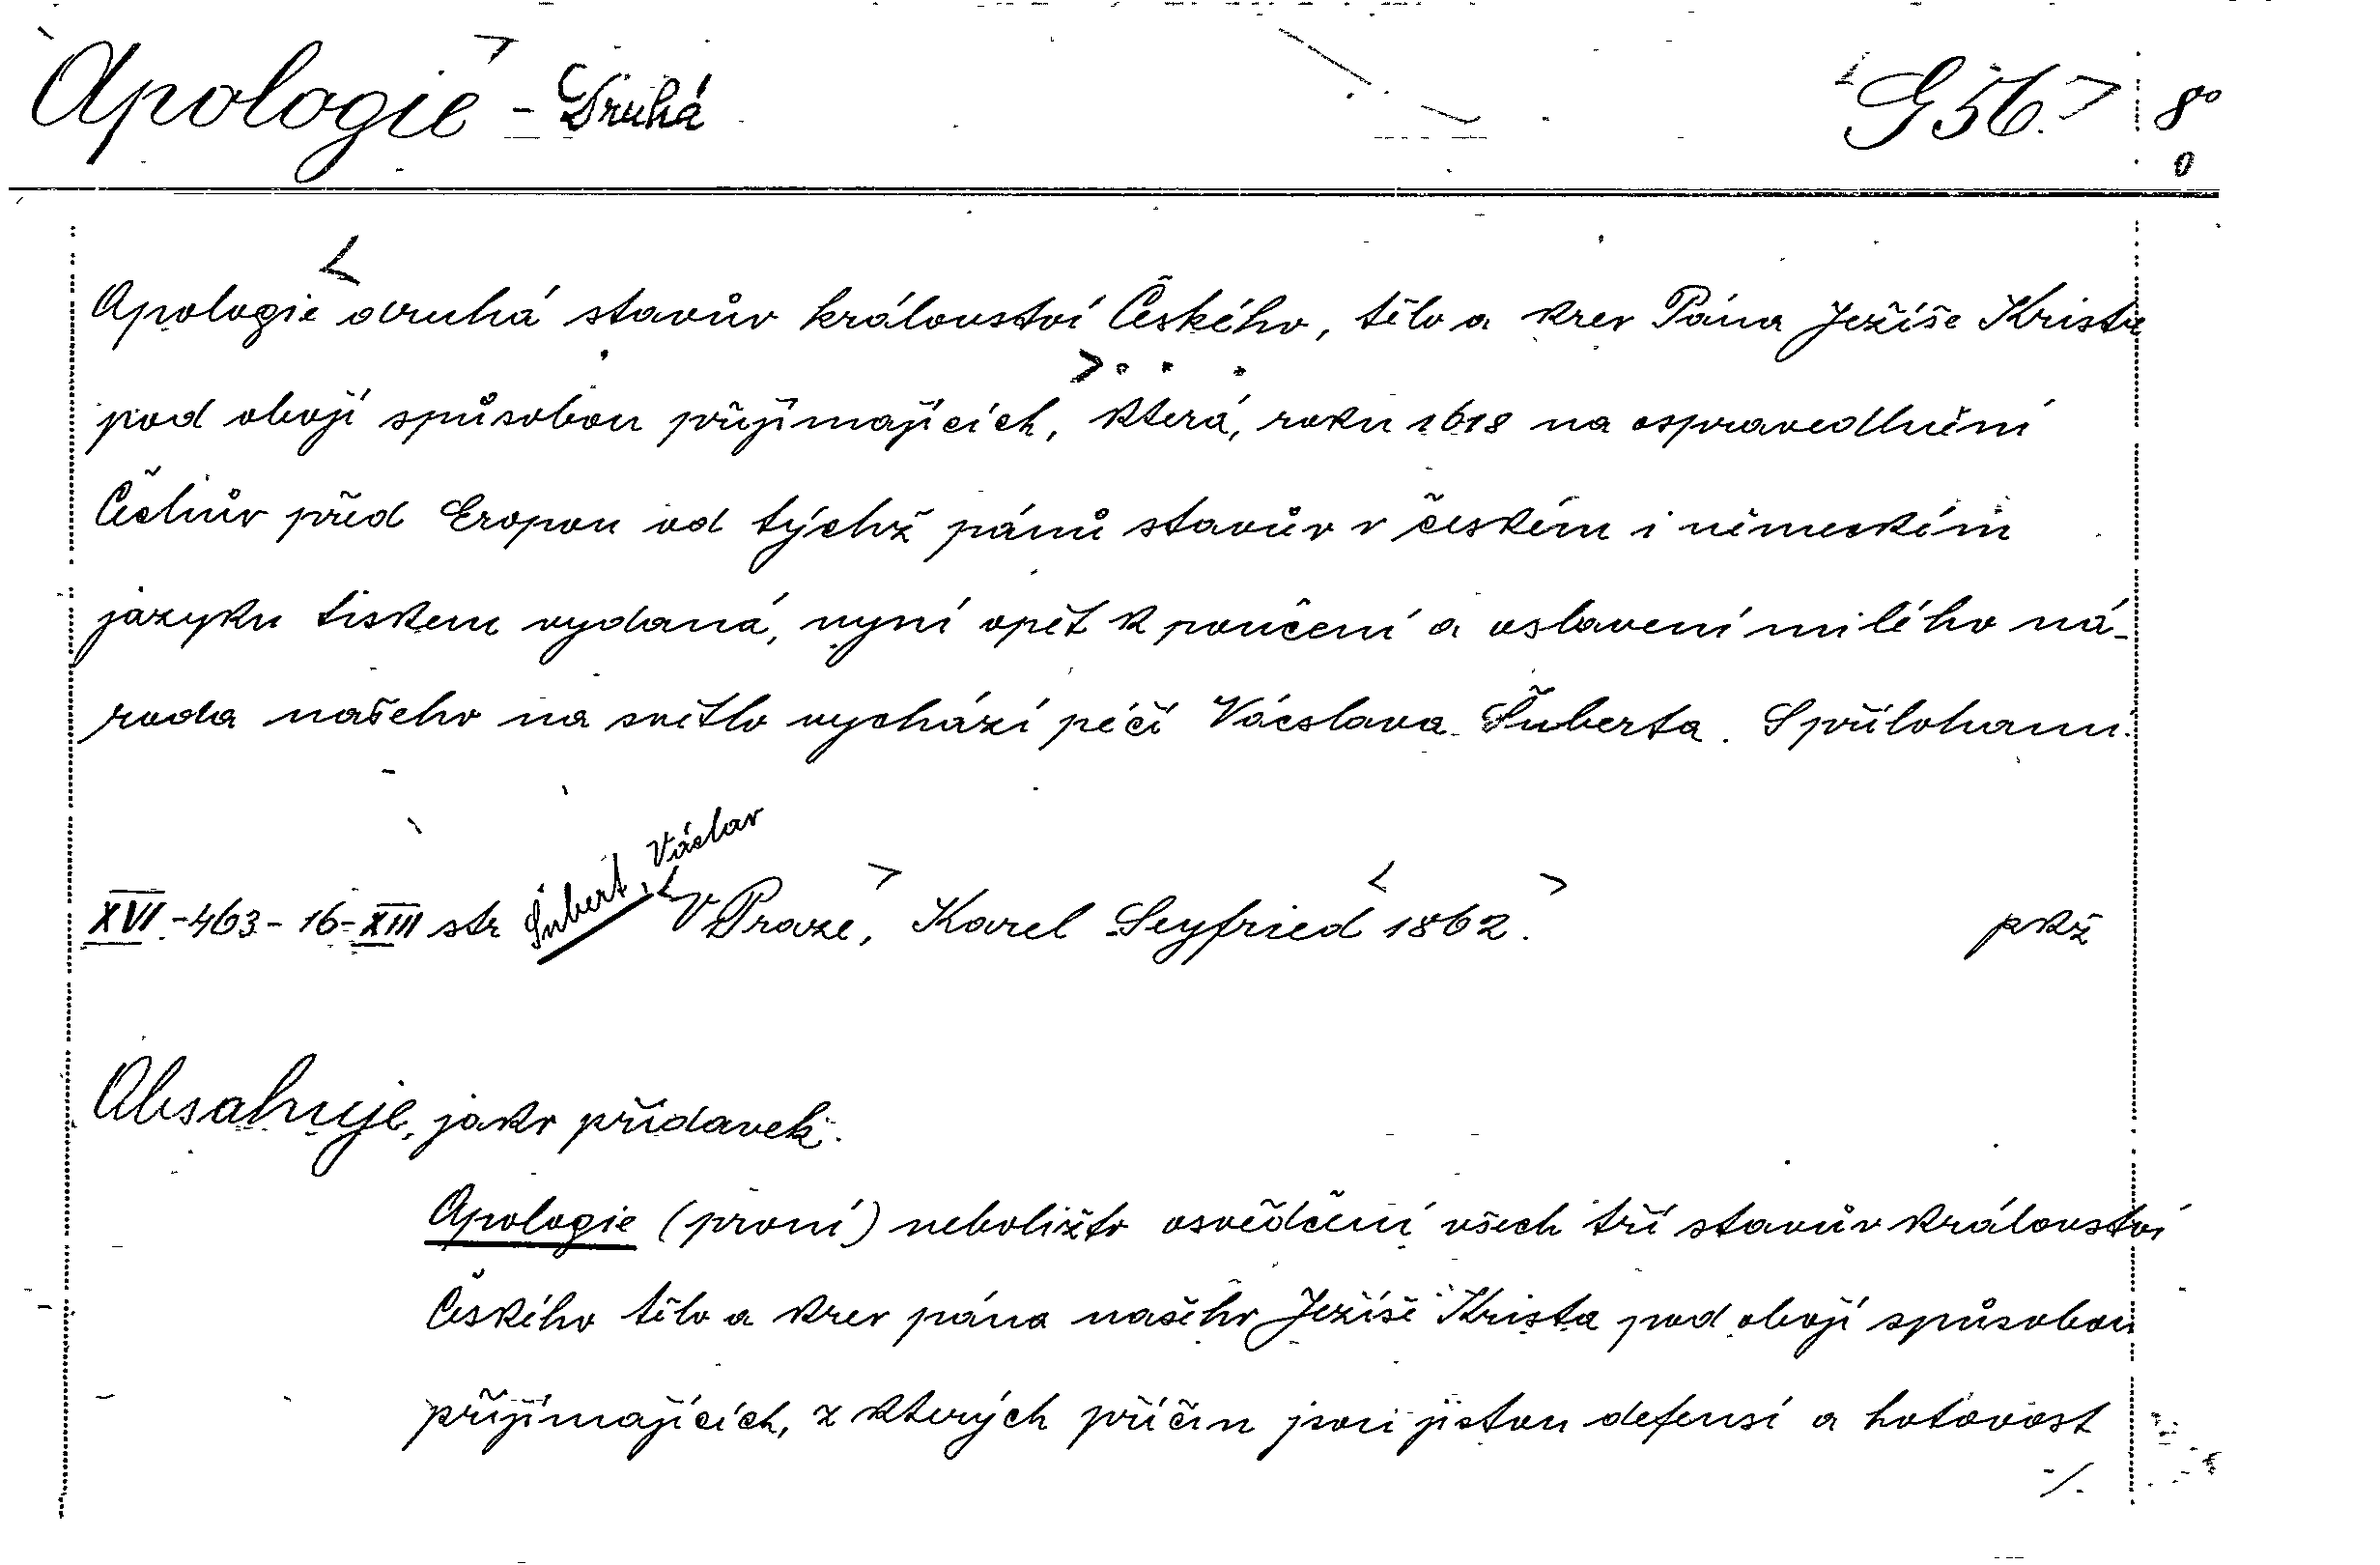 Apologie - Druhá G 56. 8°
Apologie druhá stavův království Českého, tělo a krev Pána Ježíše Krista
pod obojí spůsobou přijímajících, která, roku 1618 na ospravedlnění
Čechův před Evropou od týchž pánů stavův v českém i německém
jazyku tiskem vydaná, nyní opět k poučení a oslavení milého ná-
roda našeho na světlo vychází péčí Václava Šuberta. S přílohami.
Šubert, Václav
XVI - 463 - 16 - XIII str V Praze, Karel Seyfried 1862. pkž
Obsahuje, jako přídavek:
Apologie (první) neboližto osvědčení všech tří stavův království
Českého tělo a krev pána našeho Ježíše Krista pod obojí spůsobou
přijímajících, z kterých příčin jsou jistou defensí a hotovost
./.